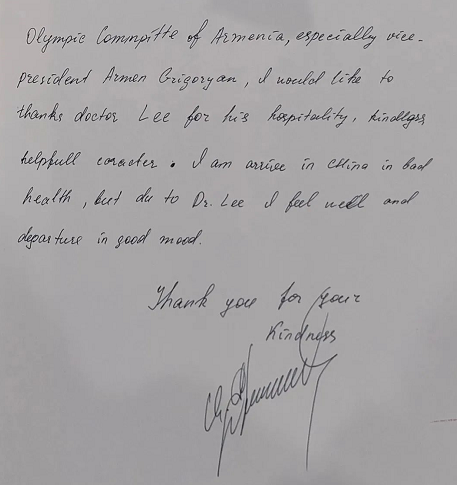 Olympic Committe of Armenia, especially vice-
president Armen Grigoryan, I would like to
thanks doctor Lee for his hospitality, kindness
helpfull coracter. I am arrive in China in bad
health, but du to Dr. Lee I feel well and
departure in good mood.
Thank you for your
Kindness